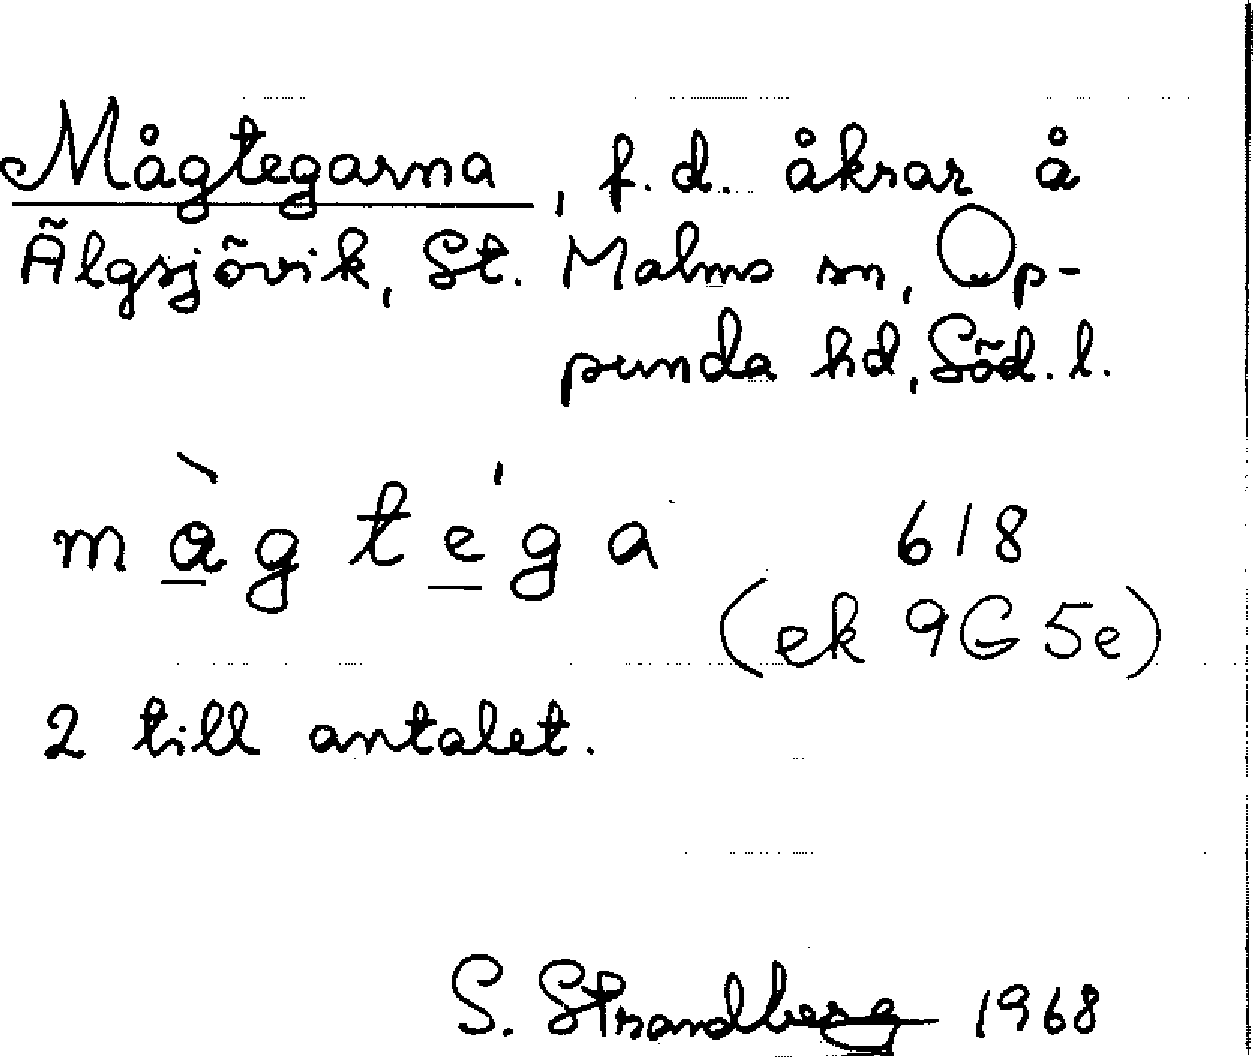 Mågtegarna, f.d. åkrar å
Älgsjövik, St. Malms sn, Op-
punda hd, Söd. l.
m à g t e ́ g a 618
(ek 9G 5e)
2 till antalet.
S. Strandberg 1968